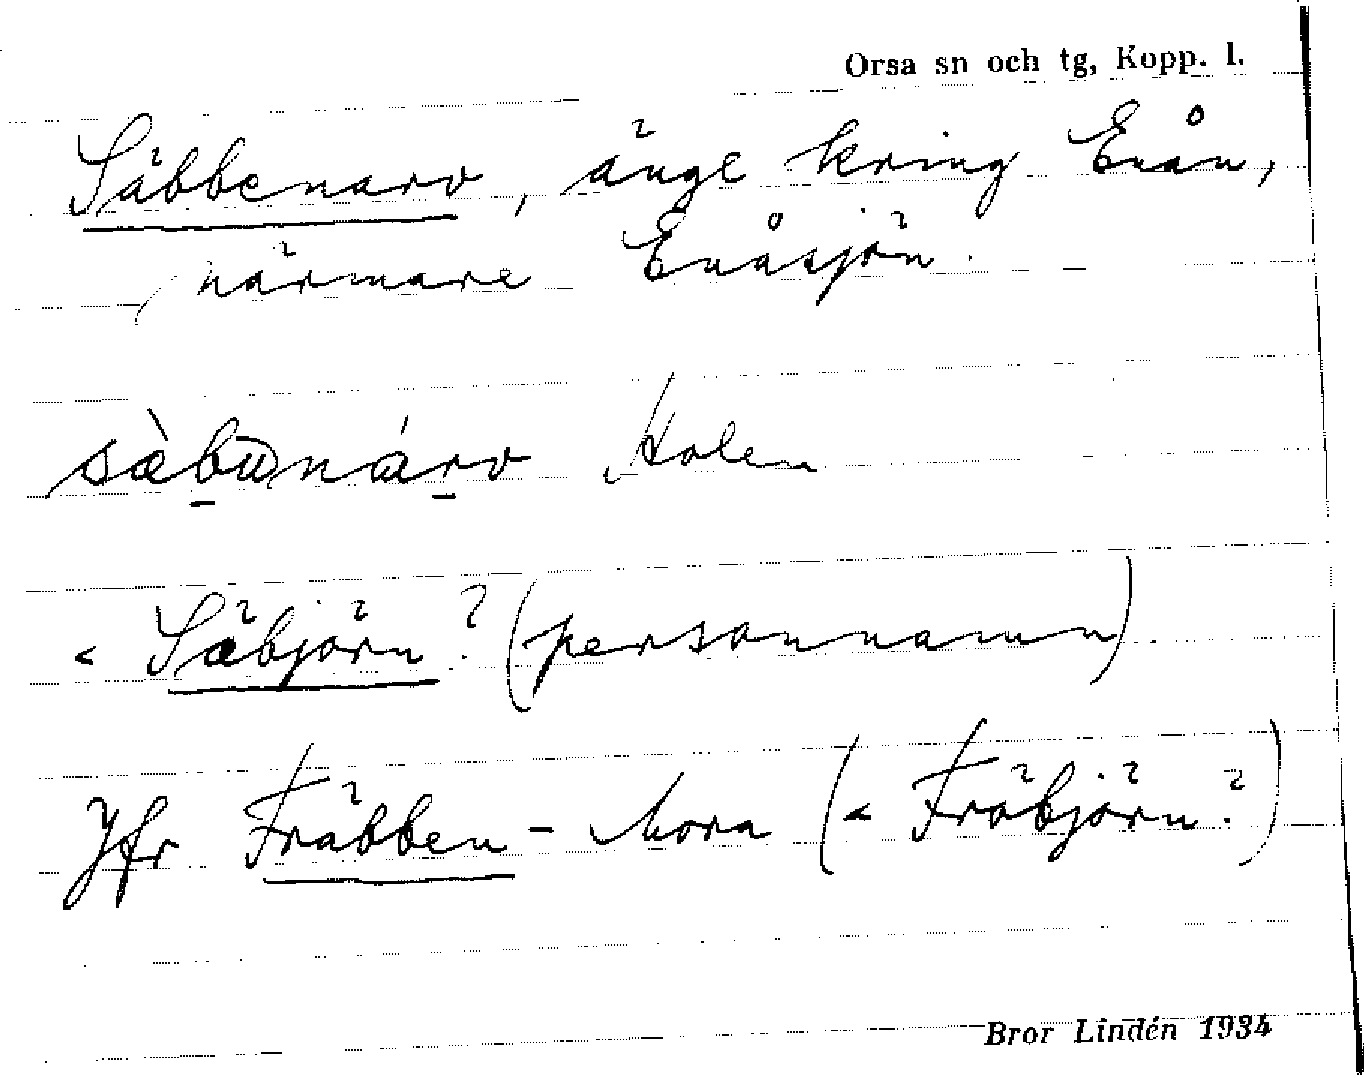 Orsa sn och tg, Kopp. l.
Säbbenarv, änge kring Enån,
närmare Enåsjön.
sàbun̄árv Holen
< Säbjörn? (personnamn).
Jfr Fräbben - Mora (< Fröbjörn?)
Bror Lindén 1934